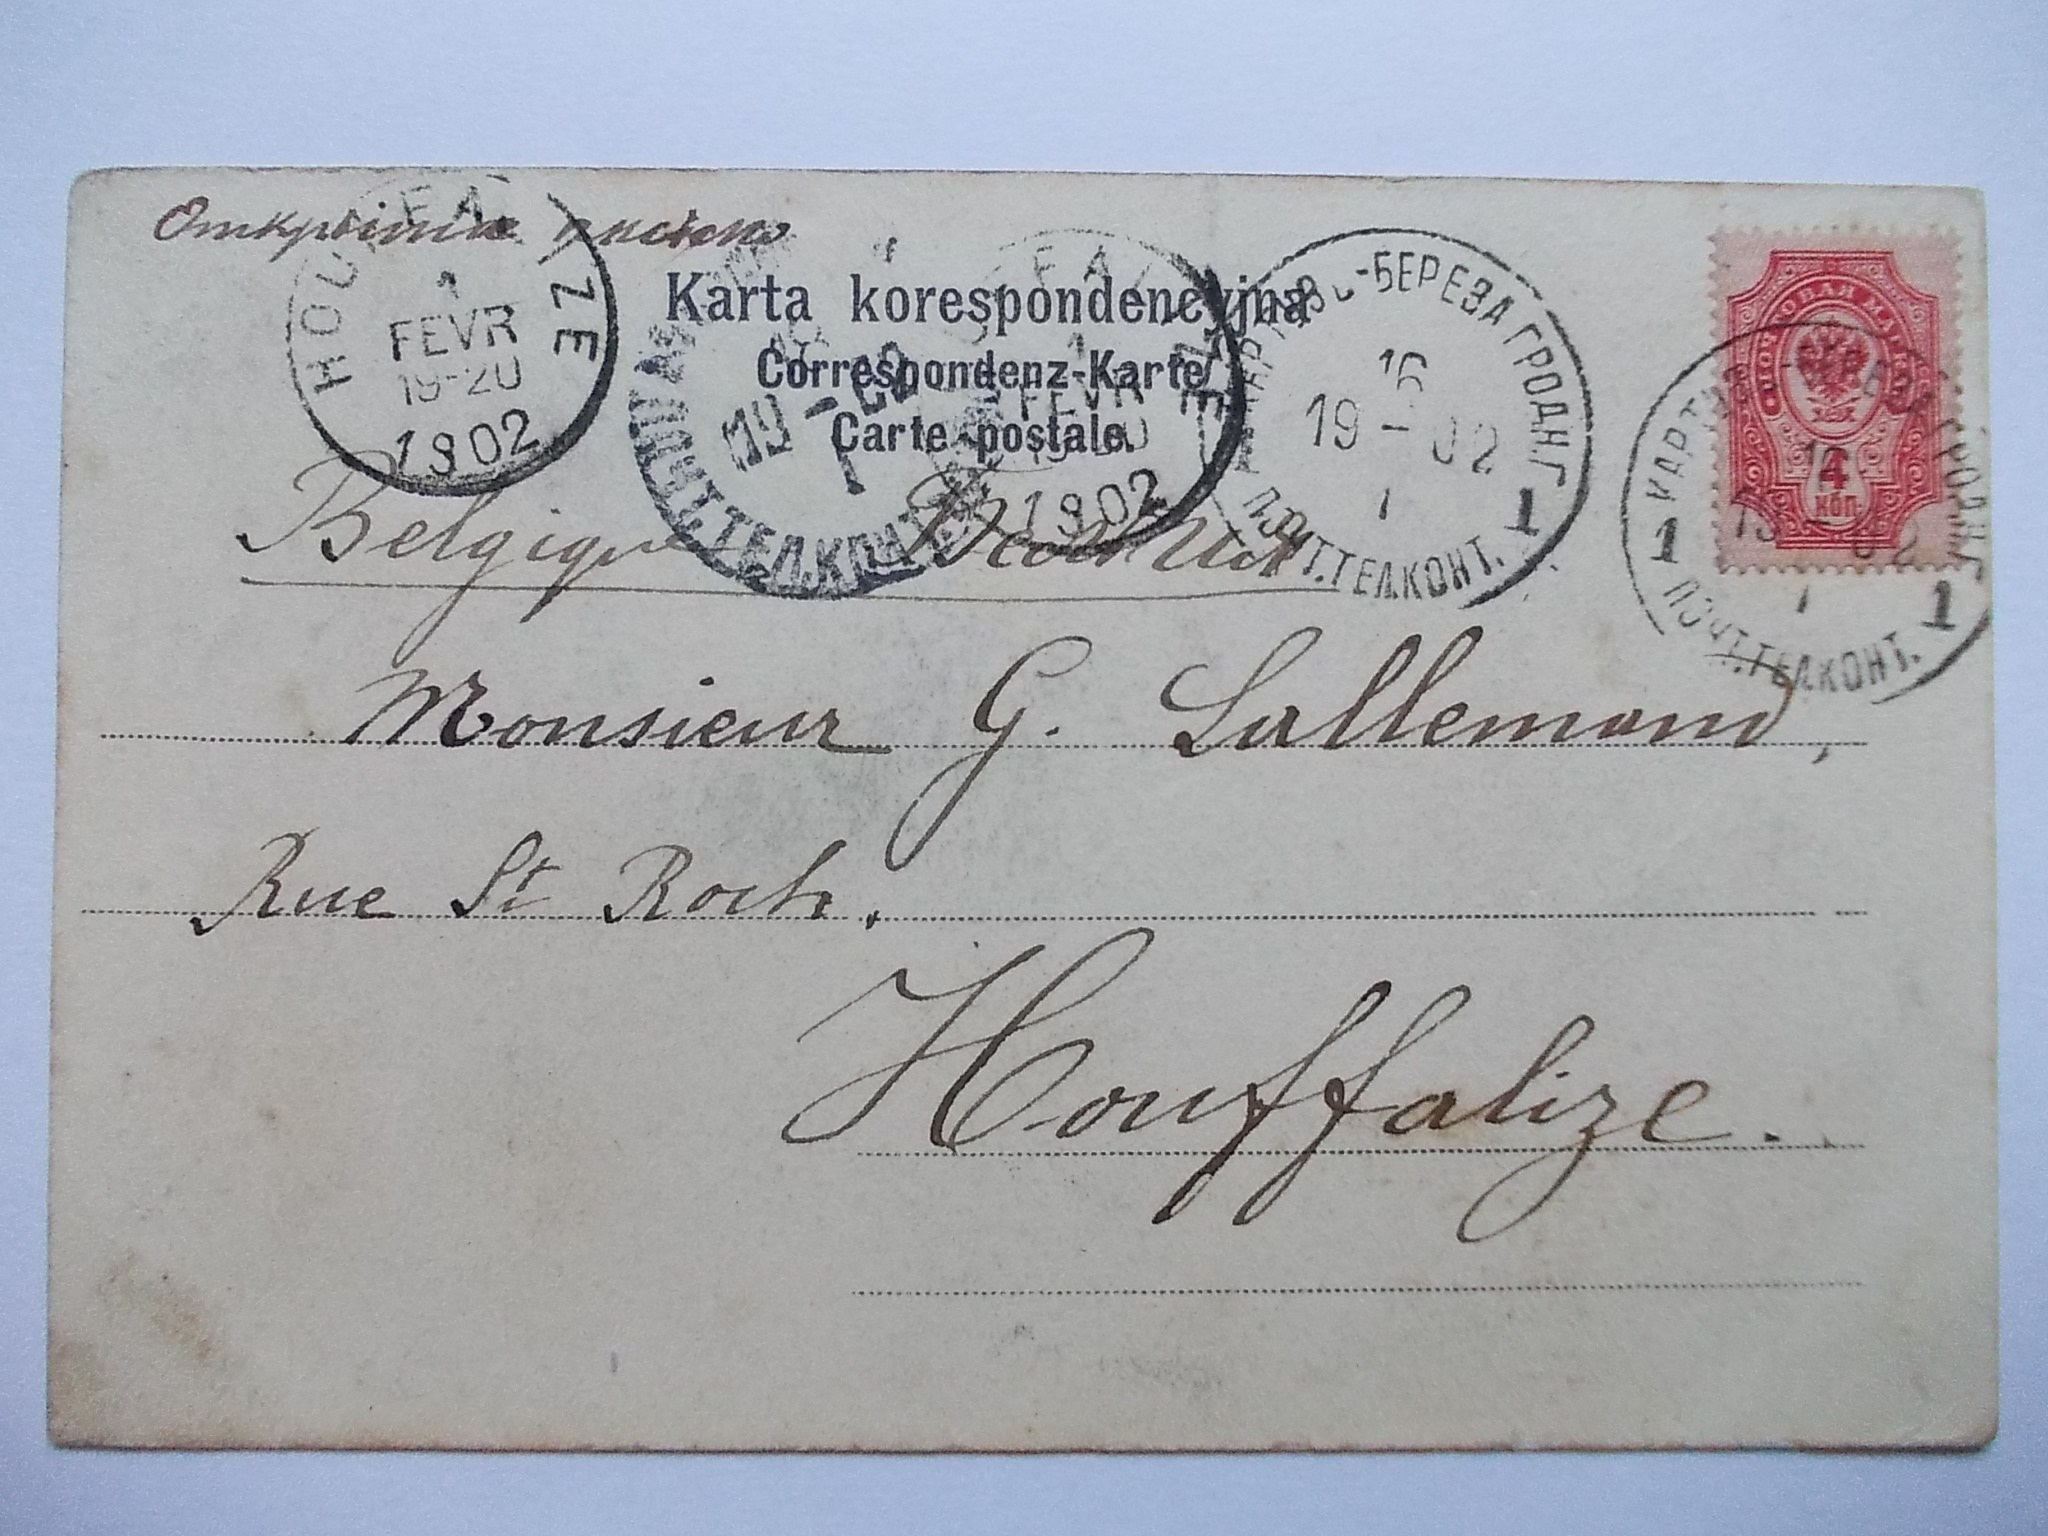 Открытое письмо
HOUFFALIZE
1
FEVR
19-20
1902
Karta korespondencyjna
Correspondenz-Karte
Carte postale.
FEVR
1902
ПОЧТ.ТЕЛ.КОНТ.
КАРТУЗЪ-БЕРЕЗА ГРОДН.Г.
16
19-02
1
1 ПОЧТ.ТЕЛ.КОНТ. 1
ПОЧТОВАЯ МАРКА
4
КОП.
КАРТУЗЪ-БЕРЕЗА ГРОДН.Г.
16
19-02
1
1 ПОЧТ.ТЕЛ.КОНТ. 1
Belgique
Monsieur G. Lallemand,
Rue St Roch.
Houffalize.